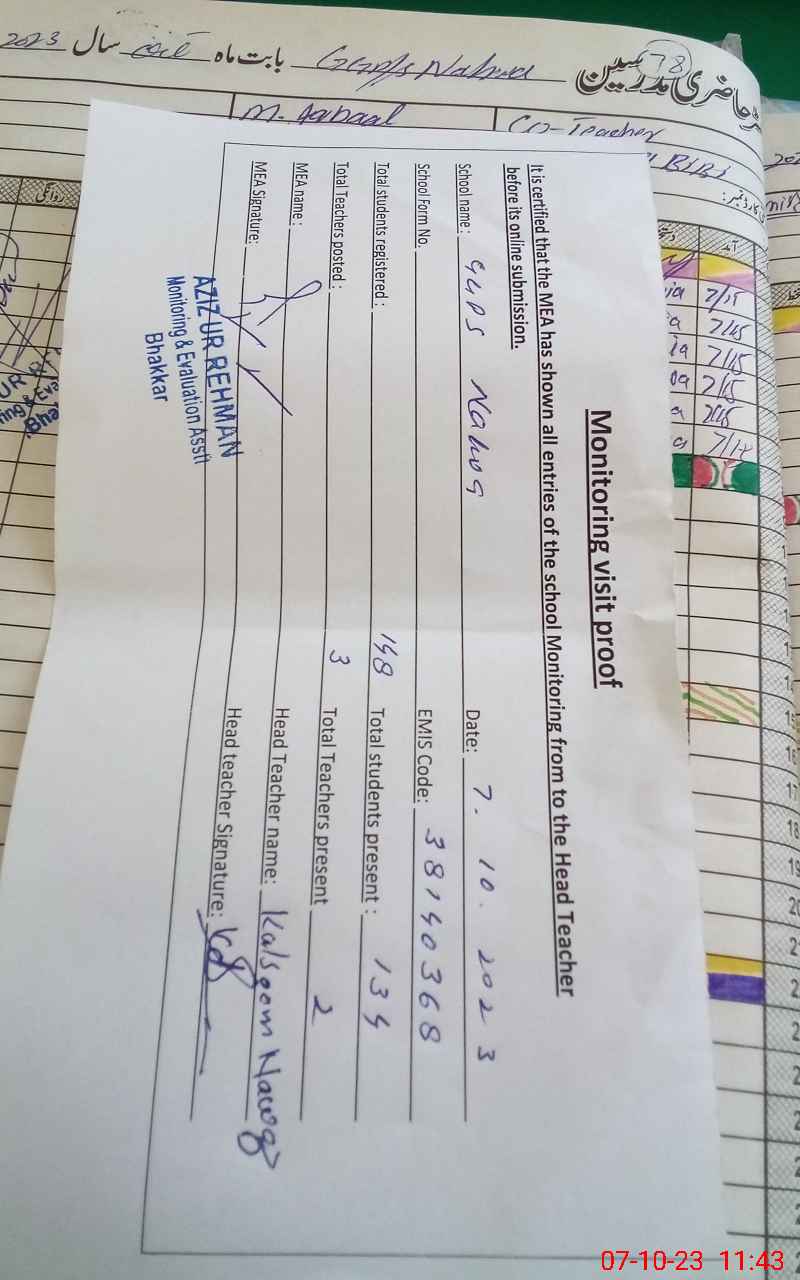 2023 سال بابت ماہ GGPS Nahra حاضری مدرسین 78
Co-Teacher
BIBI
Monitoring visit proof
It is certified that the MEA has shown all entries of the school Monitoring from to the Head Teacher
before its online submission.
School name: GGPS Date: 7.10.2023
School Form No. EMIS Code: 38140368
Total students registered: 148 Total students present: 134
Total Teachers posted: 3 Total Teachers present 2
MEA name: Head Teacher name: Kalsoom Nawaz
MEA Signature: Head teacher Signature:
AZIZ UR REHMAN
Monitoring & Evaluation Asstt
Bhakkar
روانگی
آمد
07-10-23 11:43